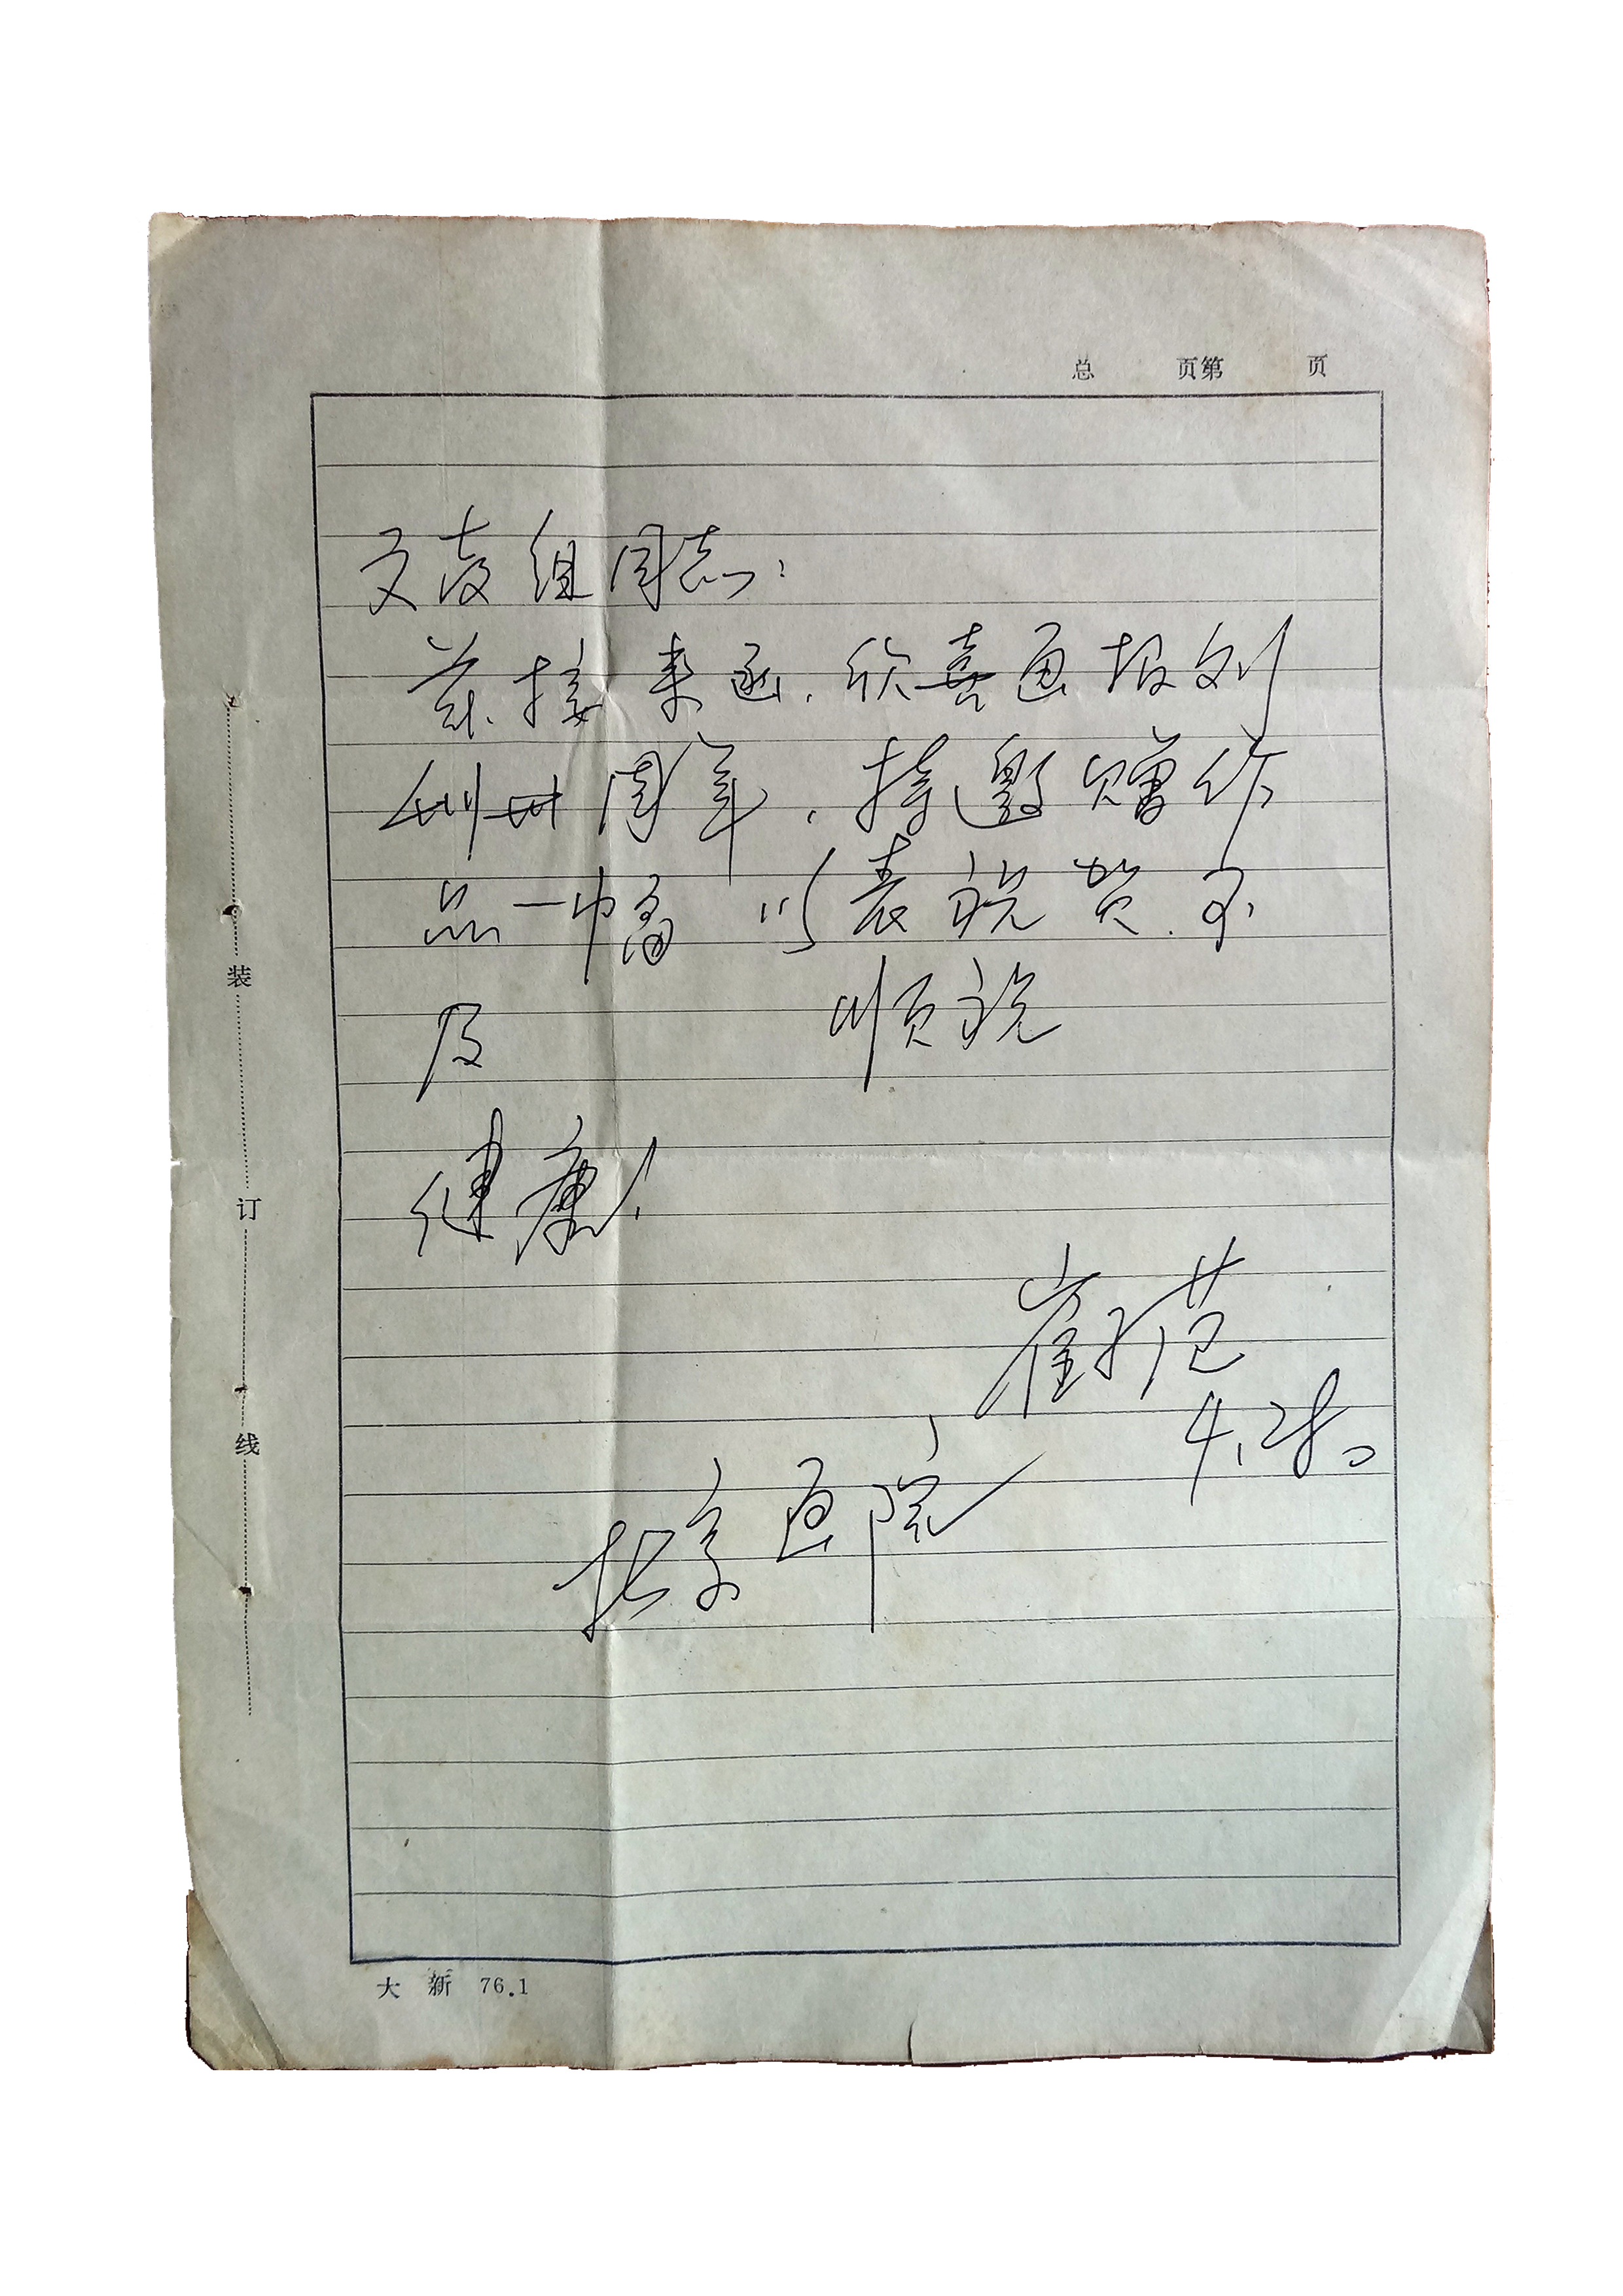 总 页第 页
文教组同志：
兹接来函，欣喜画报创
刊卅周年，特邀赠作
品一幅 以表祝贺.
及 顺祝
健康！
崔子范
4.28。
北京画院
装
订
线
大 新 76.1